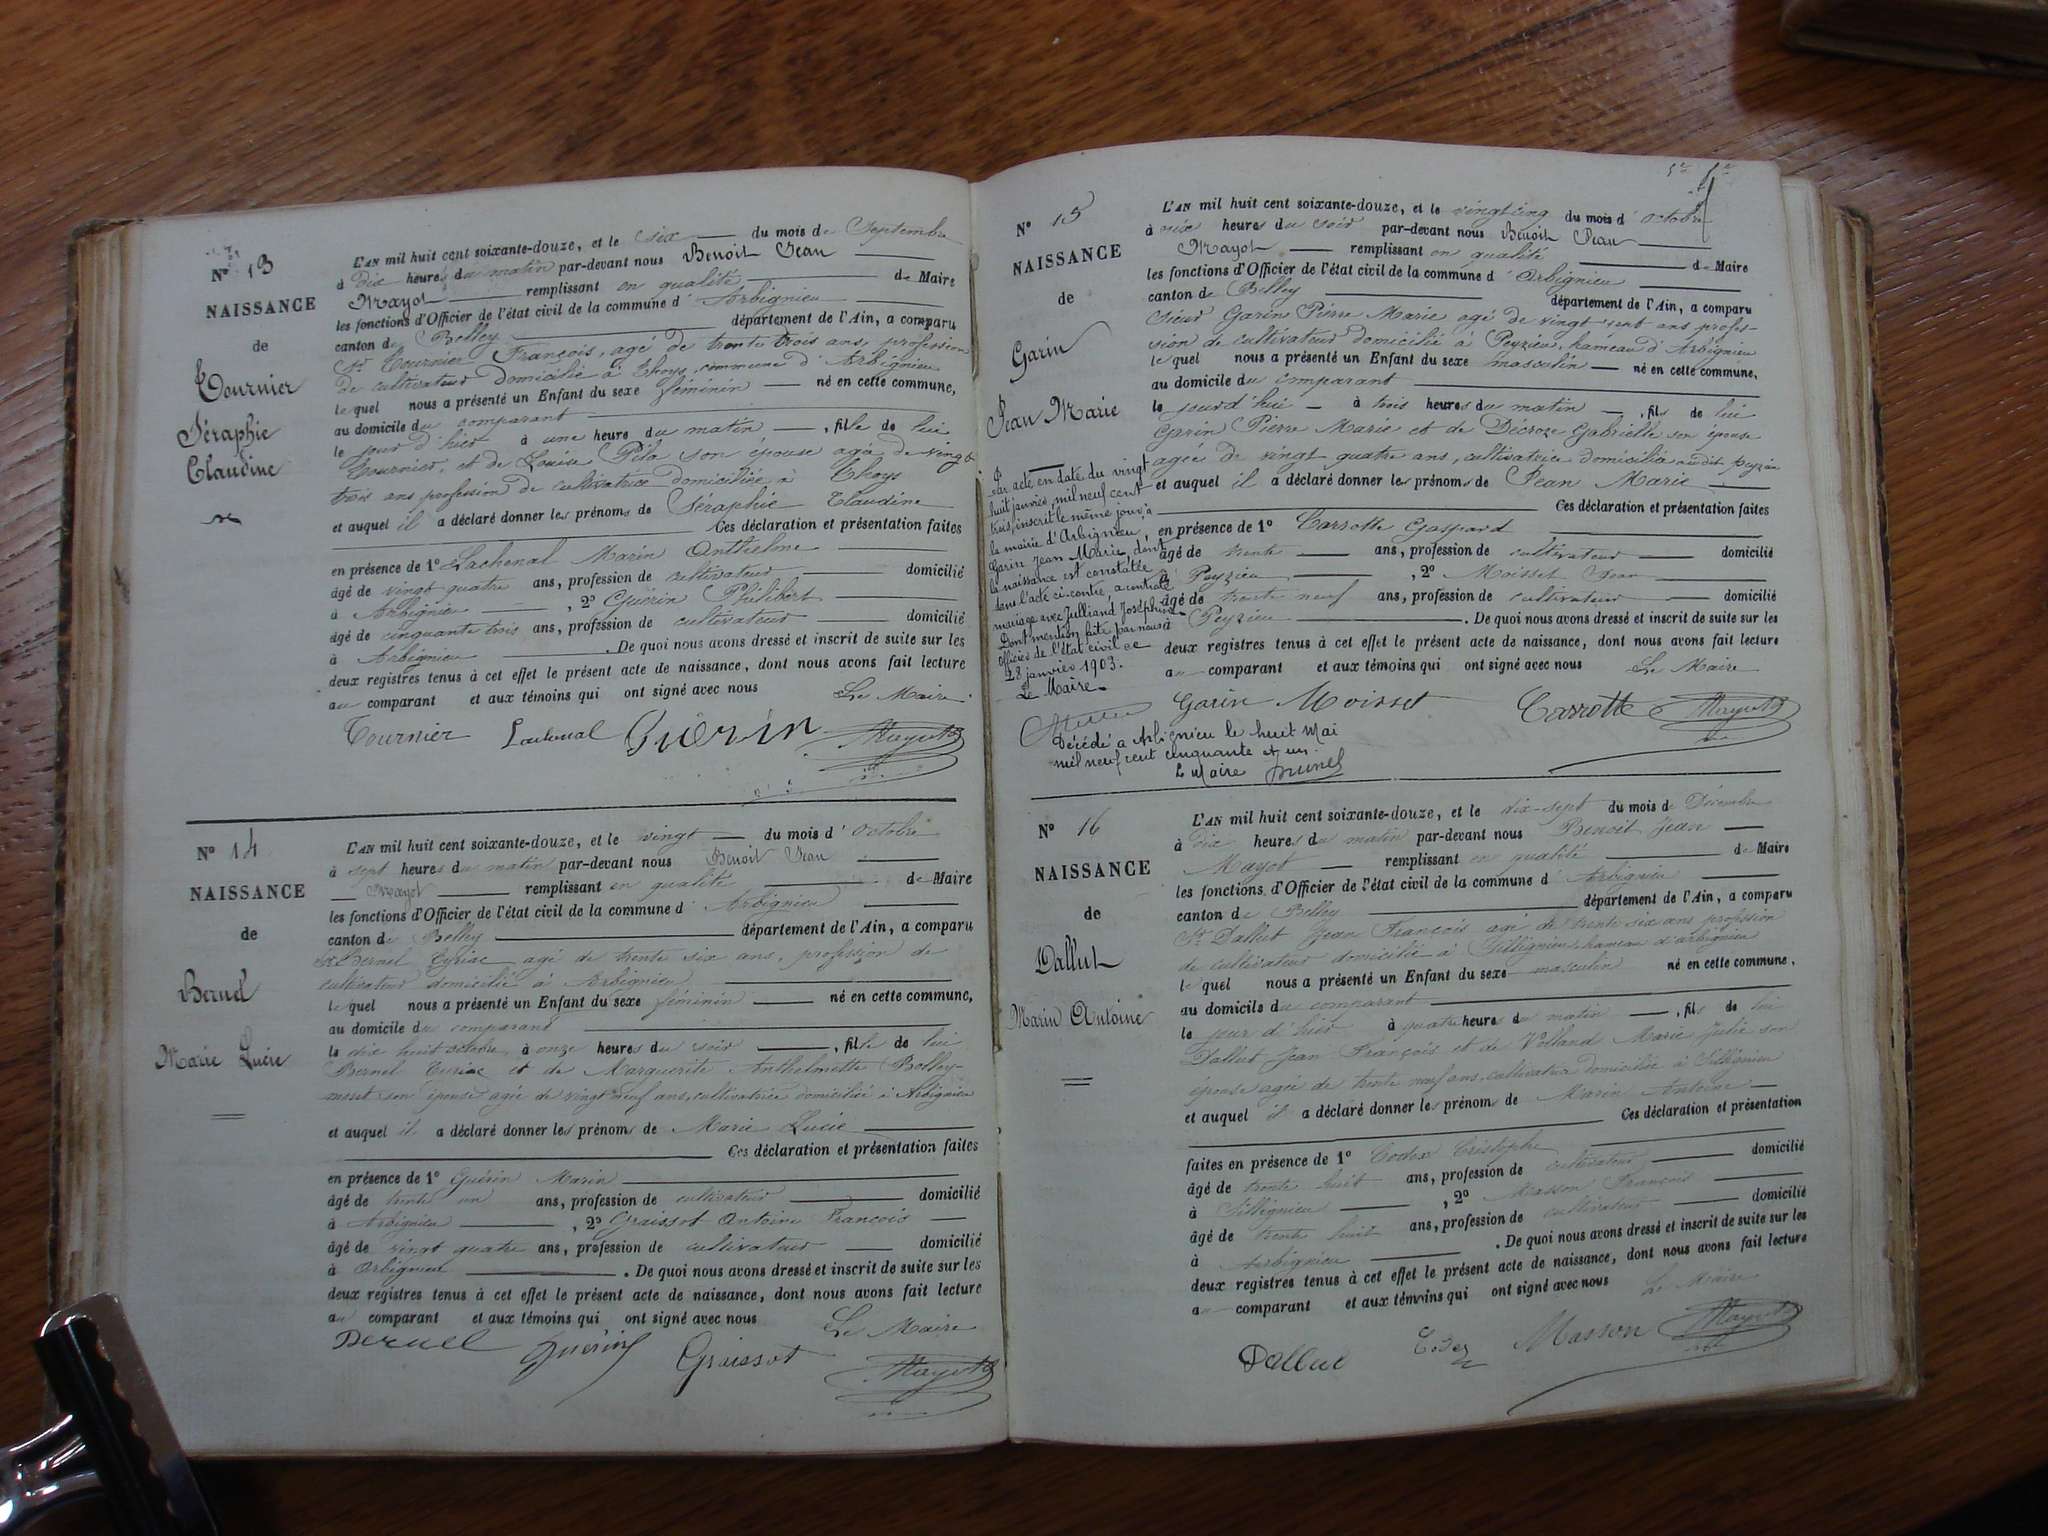 Nº 13
NAISSANCE
de
Tournier
Séraphie
Claudine
L'AN mil huit cent soixante-douze, et le six du mois de Septembre
à dix heures du matin par-devant nous Benoit Jean
Mayot remplissant en qualité de Maire
les fonctions d'Officier de l'état civil de la commune d'Arbignieu
canton de Belley département de l'Ain, a comparu
Sr Tournier François, agé de trente trois ans, profession
de cultivateur domicilié à Thoys, commune d'Arbignieu
le quel nous a présenté un Enfant du sexe féminin né en cette commune,
au domicile du comparant
le jour d'hier à une heure du matin, fille de lui
Tournier, et de Louise Pila son épouse agée de vingt
trois ans profession de cultivatrice domiciliée à Thoys
et auquel il a déclaré donner les prénoms de Séraphie Claudine
Ces déclaration et présentation faites
en présence de 1º Lachenal Marin Anthelme
âgé de vingt quatre ans, profession de cultivateur domicilié
à Arbignieu, 2º Guérin Philibert
âgé de cinquante trois ans, profession de cultivateur domicilié
à Arbignieu. De quoi nous avons dressé et inscrit de suite sur les
deux registres tenus à cet effet le présent acte de naissance, dont nous avons fait lecture
au comparant et aux témoins qui ont signé avec nous Le Maire
Tournier Lachenal Guérin Mayot
Nº 14
NAISSANCE
de
Bernel
Marie Lucie
L'AN mil huit cent soixante-douze, et le vingt du mois d'octobre
à sept heures du matin par-devant nous Benoit Jean
Mayot remplissant en qualité de Maire
les fonctions d'Officier de l'état civil de la commune d'Arbignieu
canton de Belley département de l'Ain, a comparu
Sr Bernel Cyriac agé de trente six ans, profession de
cultivateur domicilié à Arbignieu
le quel nous a présenté un Enfant du sexe féminin né en cette commune,
au domicile du comparant
le dix huit octobre à onze heures du soir, fille de lui
Bernel Curiac et de Marguerite Anthelmette Bolley-
mont son épouse agée de vingt neuf ans, cultivatrice domiciliée à Arbignieu
et auquel il a déclaré donner les prénoms de Marie Lucie
Ces déclaration et présentation faites
en présence de 1º Guérin Marin
âgé de trente un ans, profession de cultivateur domicilié
à Arbignieu, 2º Graissot Antoine François
âgé de vingt quatre ans, profession de cultivateur domicilié
à Arbignieu. De quoi nous avons dressé et inscrit de suite sur les
deux registres tenus à cet effet le présent acte de naissance, dont nous avons fait lecture
au comparant et aux témoins qui ont signé avec nous Le Maire
Bernel Guérin Graissot Mayot
Nº 15
NAISSANCE
de
Garin
Jean Marie
Par acte en date du vingt
huit janvier, mil neuf cent
trois, inscrit le même jour, à
la mairie d'Arbignieu,
Garin Jean Marie, dont
la naissance est constatée
dans l'acte ci-contre, a contracté
mariage avec Julliand Joséphine
Dont mention faite par nous
officier de l'état civil ce
28 janvier 1903.
Le Maire.
Décédé à Arbignieu le huit Mai
mil neuf cent cinquante et un.
Le Maire Brunel
L'AN mil huit cent soixante-douze, et le vingt cinq du mois d'octobre
à six heures du soir par-devant nous Benoit Jean
Mayot remplissant en qualité de Maire
les fonctions d'Officier de l'état civil de la commune d'Arbignieu
canton de Belley département de l'Ain, a comparu
Sieur Garin Pierre Marie agé de vingt sept ans profes-
sion de cultivateur domicilié à Peyzieu, hameau d'Arbignieu
le quel nous a présenté un Enfant du sexe masculin né en cette commune,
au domicile du comparant
le jourd'hui à trois heures du matin, fils de lui
Garin Pierre Marie et de Décroze Gabrielle son épouse
agée de vingt quatre ans, cultivatrice domiciliée audit Peyzieu
et auquel il a déclaré donner les prénoms de Jean Marie
Ces déclaration et présentation faites
en présence de 1º Carrotte Gaspard
âgé de trente ans, profession de cultivateur domicilié
à Peyzieu, 2º Moisset Jean
âgé de trente neuf ans, profession de cultivateur domicilié
à Peyzieu. De quoi nous avons dressé et inscrit de suite sur les
deux registres tenus à cet effet le présent acte de naissance, dont nous avons fait lecture
au comparant et aux témoins qui ont signé avec nous Le Maire
Garin Moisset Carrotte Mayot
Nº 16
NAISSANCE
de
Dallut
Marin Antoine
L'AN mil huit cent soixante-douze, et le dix-sept du mois de Décembre
à dix heures du matin par-devant nous Benoit Jean
Mayot remplissant en qualité de Maire
les fonctions d'Officier de l'état civil de la commune d'Arbignieu
canton de Belley département de l'Ain, a comparu
Sr Dallut Jean François agé de trente six ans profession
de cultivateur domicilié à Sillignieu hameau d'arbignieu
le quel nous a présenté un Enfant du sexe masculin né en cette commune.
au domicile du comparant
le jour d'hier à quatre heures du matin, fils de lui
Dallut Jean François et de Volland Marie Julie son
épouse agée de trente neuf ans, cultivatrice domiciliée à Sillignieu
et auquel il a déclaré donner les prénoms de Marin Antoine
Ces déclaration et présentation
faites en présence de 1º Codex Cristophe
âgé de trente huit ans, profession de cultivateur domicilié
à Sillignieu, 2º Masson François
âgé de trente huit ans, profession de cultivateur domicilié
à Arbignieu. De quoi nous avons dressé et inscrit de suite sur les
deux registres tenus à cet effet le présent acte de naissance, dont nous avons fait lecture
au comparant et aux témoins qui ont signé avec nous Le Maire
Dallut Codex Masson Mayot